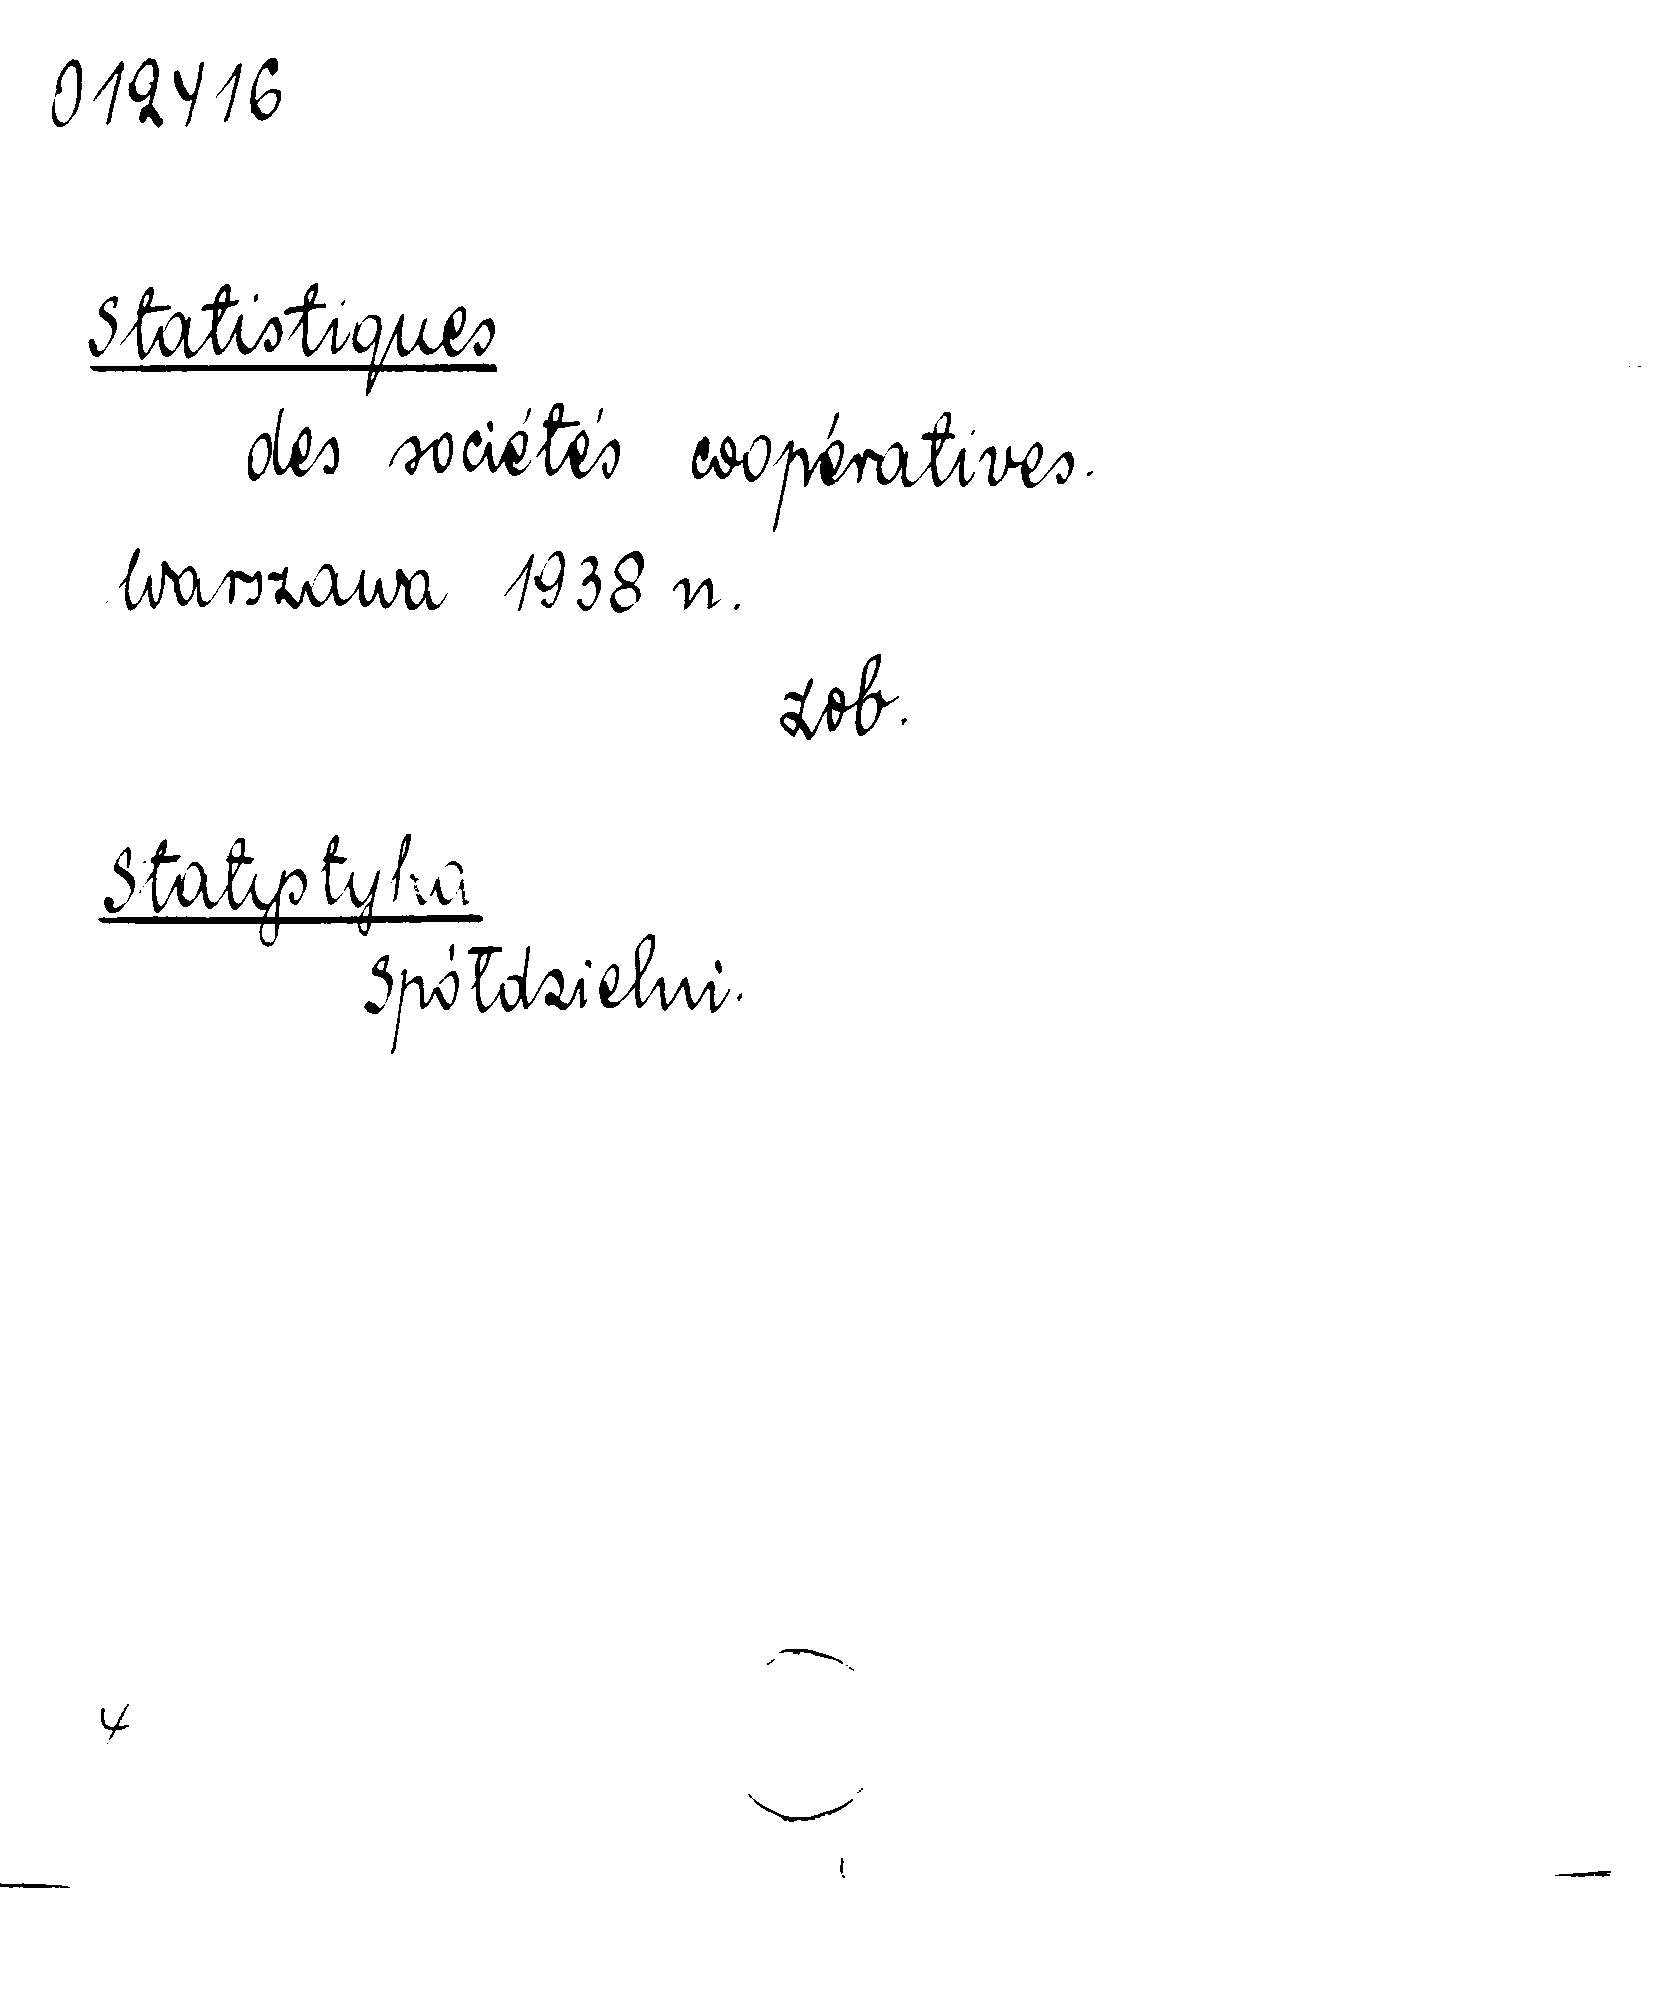 012416
Statistiques
des sociétés coopératives.
Warszawa 1938 n.
zob.
Statystyka
Spółdzielni.
4